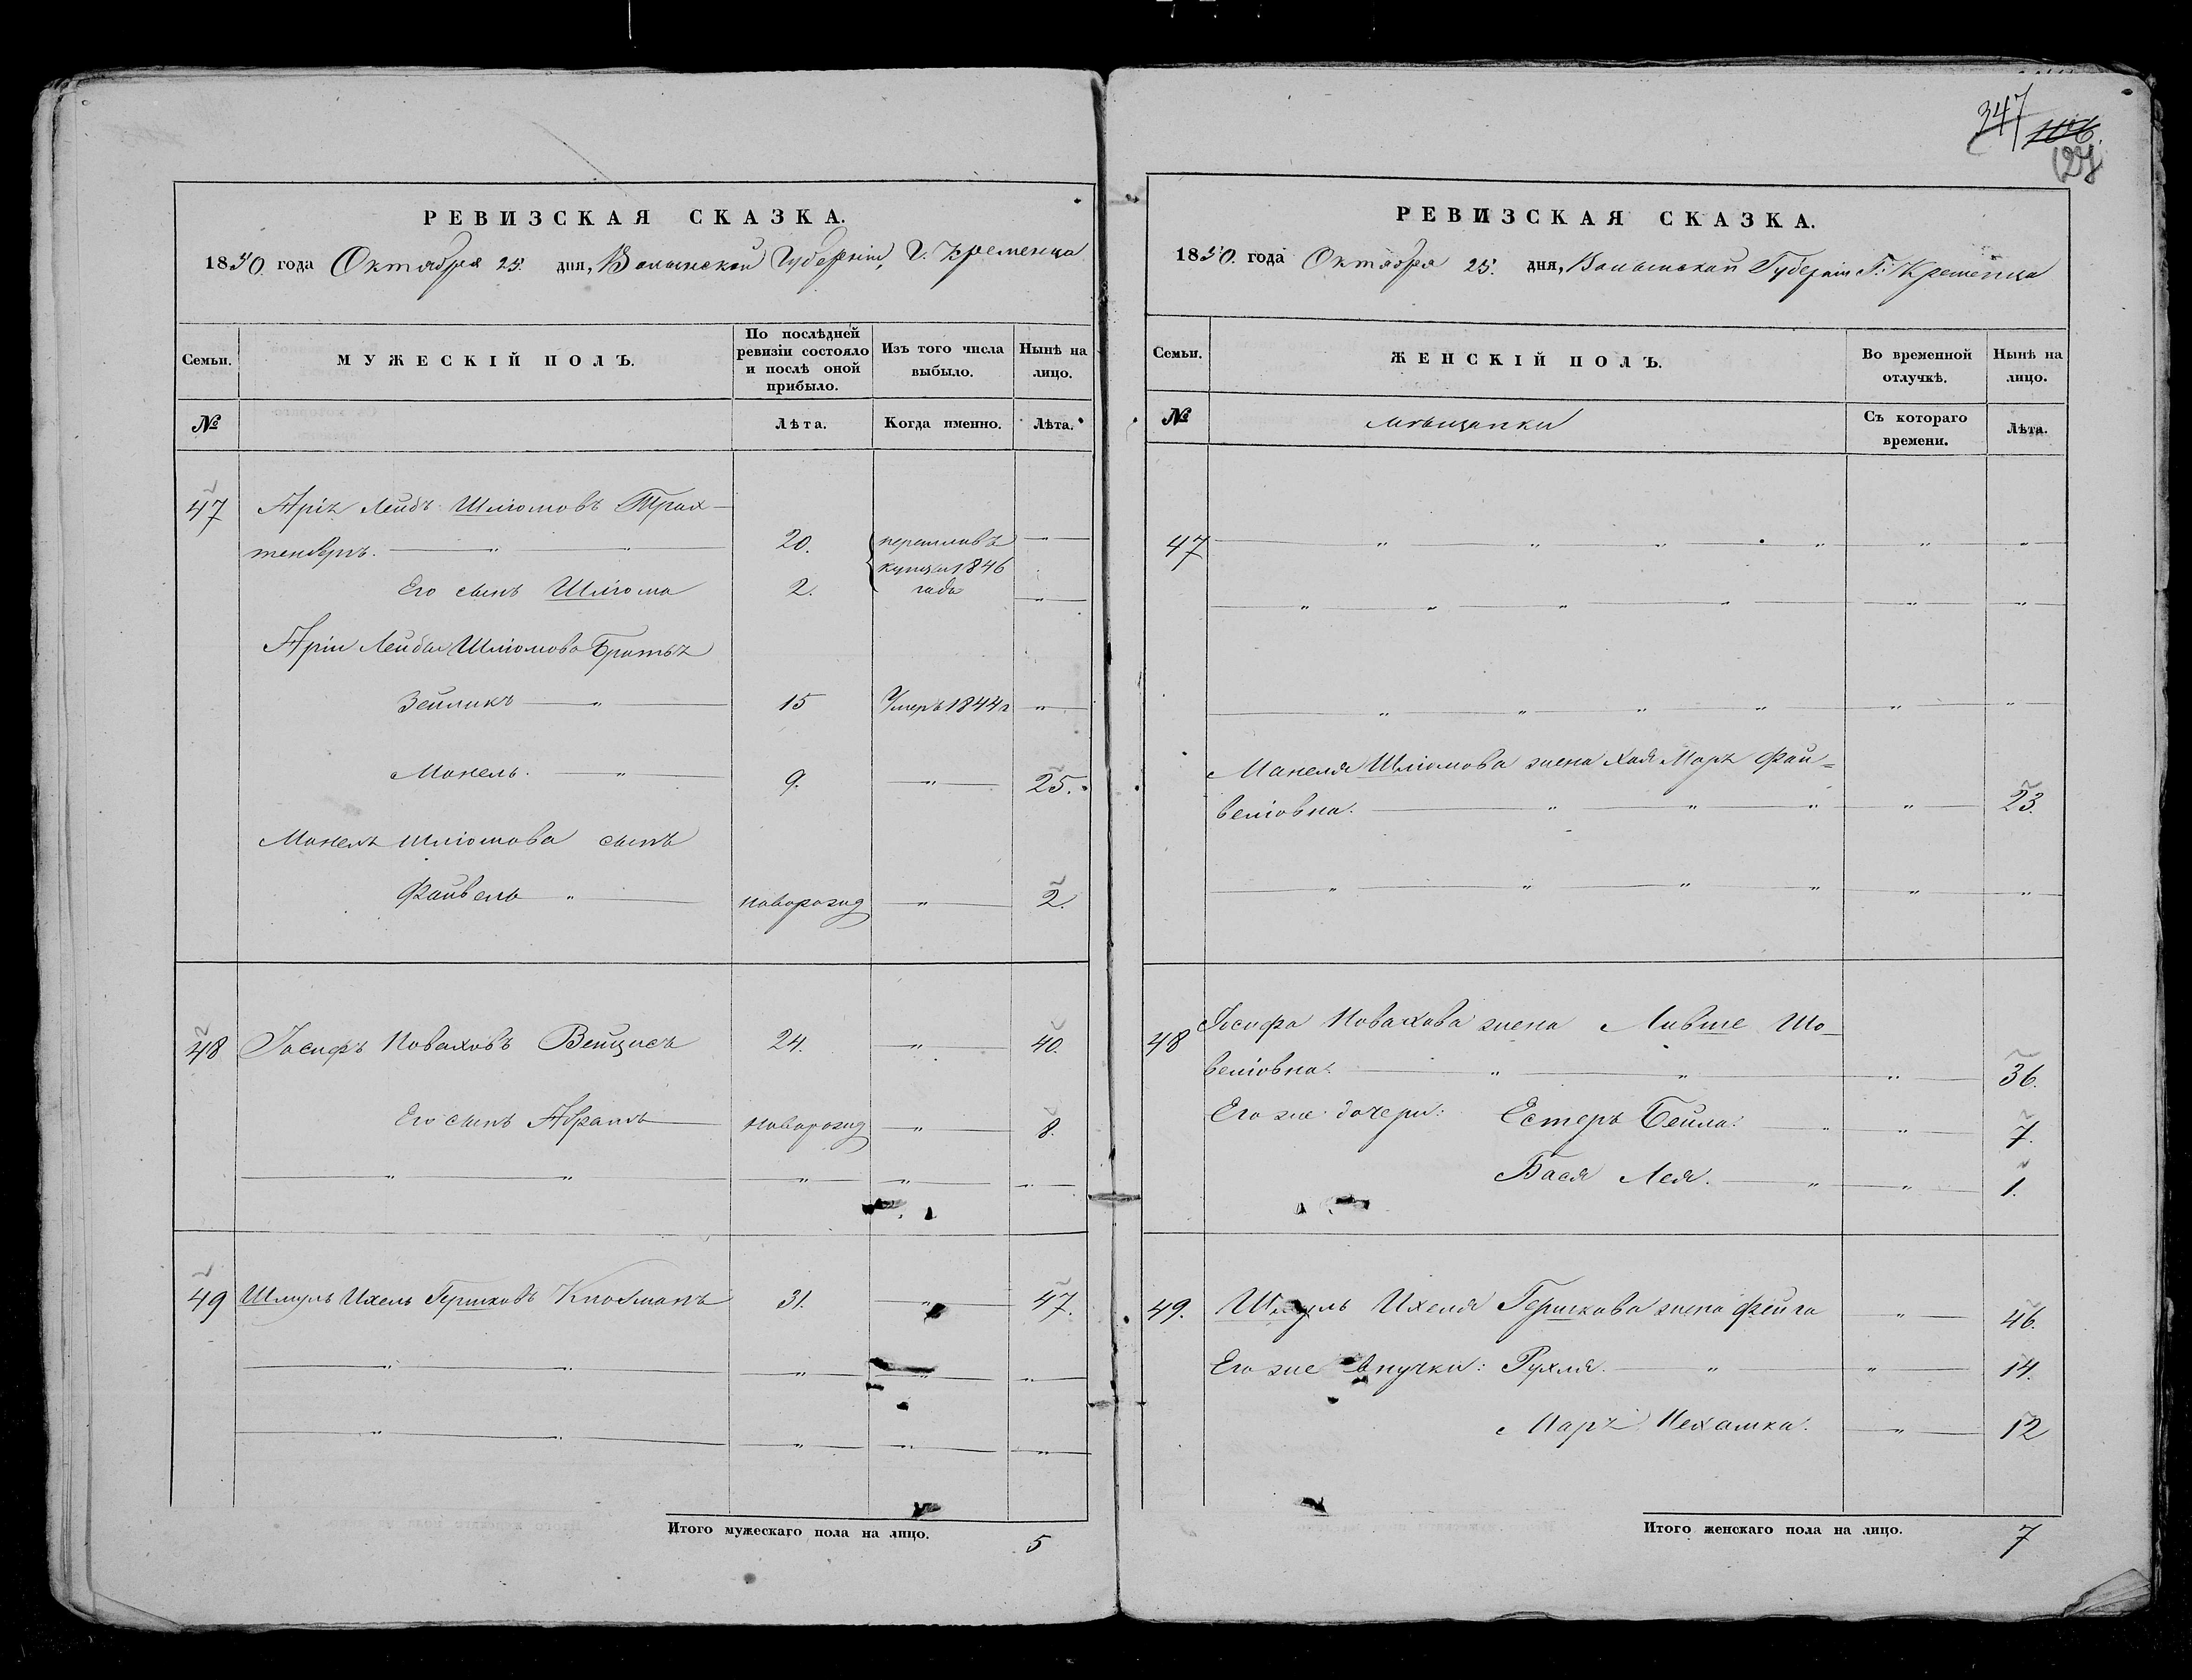 347 106.
127
РЕВИЗСКАЯ СКАЗКА.
1850 года Октября 25. дня, Волынской Губерніи, Г. Кременца
Семьи.
МУЖЕСКІЙ ПОЛЪ.
По послѣдней ревизіи состояло и послѣ оной прибыло.
Изъ того числа выбыло.
Нынѣ на лицо.
№
Лѣта.
Когда именно.
Лѣта.
47 Арія Лейбъ Шліомовъ Трах-
тенберъ. 20. перешливъ
купцы 1846
Его сынъ Шліома 2. года
Арія Лейба Шліомова братья
Зейликъ 15 Умеръ 1844 г
Манель. 9. 25.
Манеля Шліомова сынъ
Файвель новорожд 2.
48 Іосифъ Новаховъ Вейцисъ 24. 40.
Его сынъ Абрамъ новорожд 8.
49 Шмуль Ихель Гершковъ Кнобманъ 31. 47.
Итого мужескаго пола на лицо. 5
РЕВИЗСКАЯ СКАЗКА.
1850. года Октября 25. дня, Волынской Губерніи Г. Кременца
Семьи.
ЖЕНСКІЙ ПОЛЪ.
Во временной отлучкѣ.
Нынѣ на лицо.
№
мѣщанки
Съ котораго времени.
Лѣта.
47
Манеля Шліомова жена Хая Маръ Фай=
веліовна. 23.
48 Іосифа Новахова жена Ливше Шо-
веліовна. 36.
Его же дочери: Естеръ Бейла. 7.
Бася Лея. 1.
49. Шмуль Ихеля Гершкова жена Фейга 46.
Его же внучки: Рухля. 14.
Маръ Нехамка. 12
Итого женскаго пола на лицо. 7